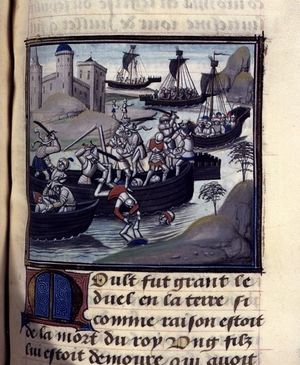 Moult fut grant le
duel en la terre si
comme raison estoit
de la mort du roy Vng filz
lui estoit demoure qui auoit